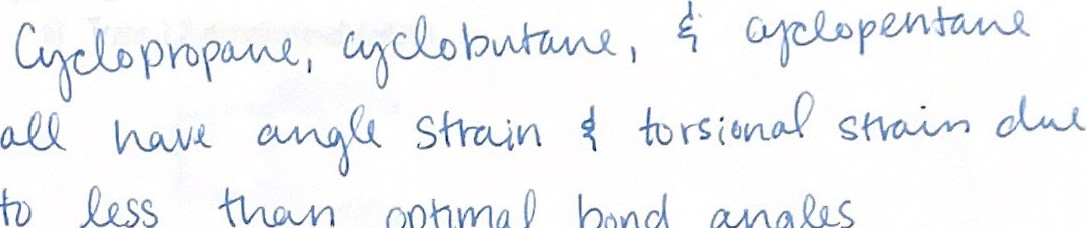 Cyclopropane, cyclobutane, & cyclopentane
all have angle strain & torsional strain due
to less than optimal bond angles